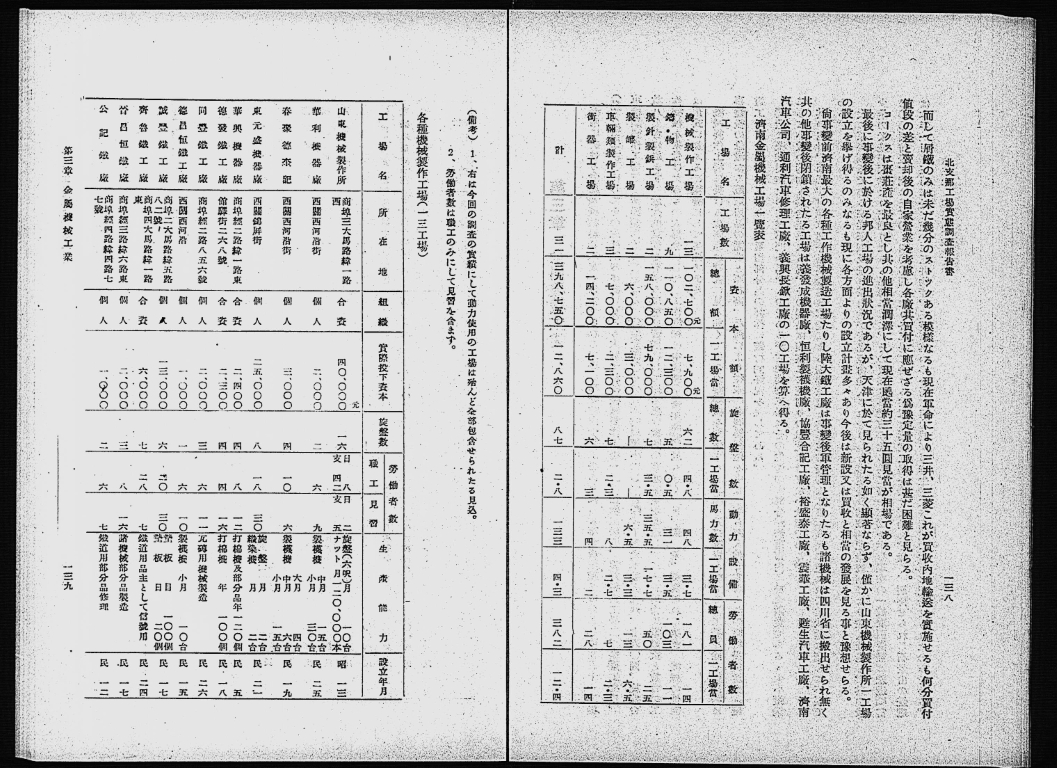 北支那工場實態調査報告書
一三八
而して屑鐵のみは未だ幾分のストックある模樣なるも現在軍命により三井、三菱これが買收內地輸送を實施せるも何分買付
値段の差と賣却後の自家營業を考慮し各廠共買付に應ぜざる爲豫定量の取得は甚だ困難と見らる。
コークスは棗莊產を最良とし其の他相當潤澤にして現在噸當約三十五圓見當が相場である。
最後に事變後に於ける邦人工場の進出狀況であるが、天津に於て見られたる如く顯著ならず、僅かに山東機械製作所一工場
の設立を擧げ得るのみなるも現に各方面よりの設立計畫多々あり今後は新設又は買收と相當の發展を見る事と豫想せらる。
尙事變前濟南最大の各種工作機械製造工場たりし陸大鐵工廠は事變後軍管理となりたるも諸機械は四川省に搬出せられ無く
其の他事變後閉鎖されたる工場は義發成機器廠、恒利製機廠、協豐合記工廠、裕盛泰工廠、震華工廠、甦生汽車工廠、濟南
汽車公司、通利汽車修理工廠、義興長鐵工廠の一〇工場を算へ得る。
濟南金屬機械工場一覽表
工場名 工場數 資本額 總額 一工場當 旋盤數 總數 一工場當 動力設備 馬力數 一工場當 勞働者數 總員 一工場當
機械製作工場 一三 一〇二、七〇〇元 七、九〇〇元 六二 四・八 四八 三・七 一八一 一四
製針製鋲工場 二 一五八、〇〇〇 七九、〇〇〇 七 三・五 三五・五 一七・七 五〇 二五
製罐工場 二 六、〇〇〇 三、〇〇〇 一 六・五 三・三 一三 六・五
衡器工場 二 一四、二〇〇 七、一〇〇 六 三 四 二 二八 一四
計 三一 三九八、七五〇 一二、八六〇 八七 二・八 一三三 四・三 三八二 一二・四
(備考) 1、右は今回の調査の實績にして動力使用の工場は殆んど全部包含せられたる見込。
2、勞働者數は職工のみにして見習を含まず。
各種機械製作工場(一三工場)
工場名 所在地 組織 實際投下資本 旋盤數 勞働者數 職工 見習 生產能力 設立年月
山東機械製作所 商埠三大馬路緯一路西 合資 四〇、〇〇〇元 一六 日八 支四二 日二 支五 旋盤(六呎)月 一〇台 ナット月一二〇、〇〇〇本 昭一三
郡利機器廠 西關西河沿街 個人 二、〇〇〇 二 六 九 製襪機 中月 五台 小月 三〇台 民二五
春聚德杰記 西關西河沿街 個人 三、〇〇〇 四 一〇 六 製襪機 大月 四台 中月 六台 小月 一五台 民一九
東元盛機器廠 西關錦屏街 個人 二五、〇〇〇 八 一八 三〇 旋盤 月 二台 織染機 月 二台 民二
華興機器廠 商埠經二路緯一路東 合資 二、四〇〇 四 八 一二 打棉機及部分品年一二〇個 民五
德發鐵工廠 館驛街二六八號 合資 二、三〇〇 四 四 六 打棉機 年 一〇〇個 民一八
同豐鐵工廠 商埠經二路八五六號 個人 二、〇〇〇 三 六 一一 瓦磚用機械製造 民二六
德昌恒鐵工廠 西關西河沿 個人 一、〇〇〇 一 六 一〇 製襪機 小月 一〇台 民一五
誠豐鐵工廠 商埠二大馬路緯五路八二號 個人 一三、〇〇〇 六 二〇 三〇 墊板 日 一〇〇個 墊板 日 二〇個 民一三
齊魯鐵工廠 商埠四大馬路緯一路東 合資 六、〇〇〇 七 二八 七 鐵道用品主として信號用 民二四
晉昌恒鐵工廠 商埠經三路緯六路東 個人 二、〇〇〇 三 八 一六 諸機械部分品製造 民一七
公記鐵工廠 商埠經四路緯四路七七號 個人 一、〇〇〇 二 六 七 鐵道用部分品修理 民一二
第三章 金屬機械工業
一三九